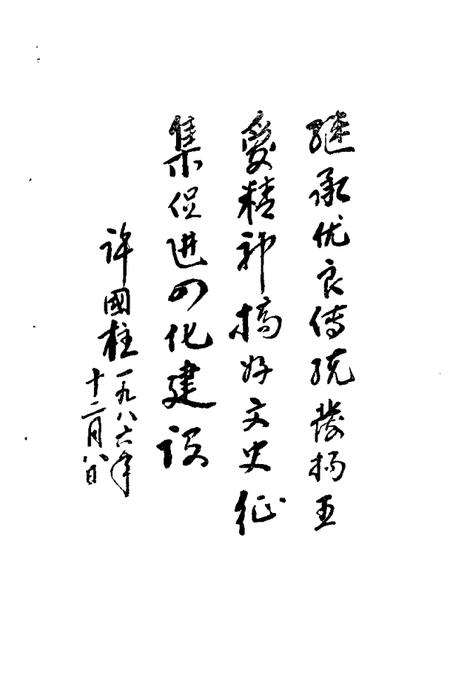 继承优良传统发扬五
爱精神搞好文史征
集促进四化建设
许國柱一九八六年
十二月八日